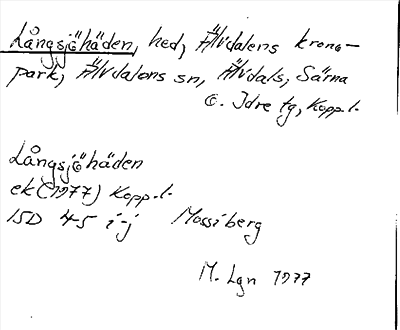 Långsjöhäden, hed, Älvdalens krono-
park, Älvdalens sn, Älvdals, Särna
o. Idre tg, Kopp.l.
Långsjöhäden
ek (1977) Kopp.l.
15D 4-5 i-j Mossiberg
M. Lgn 1977